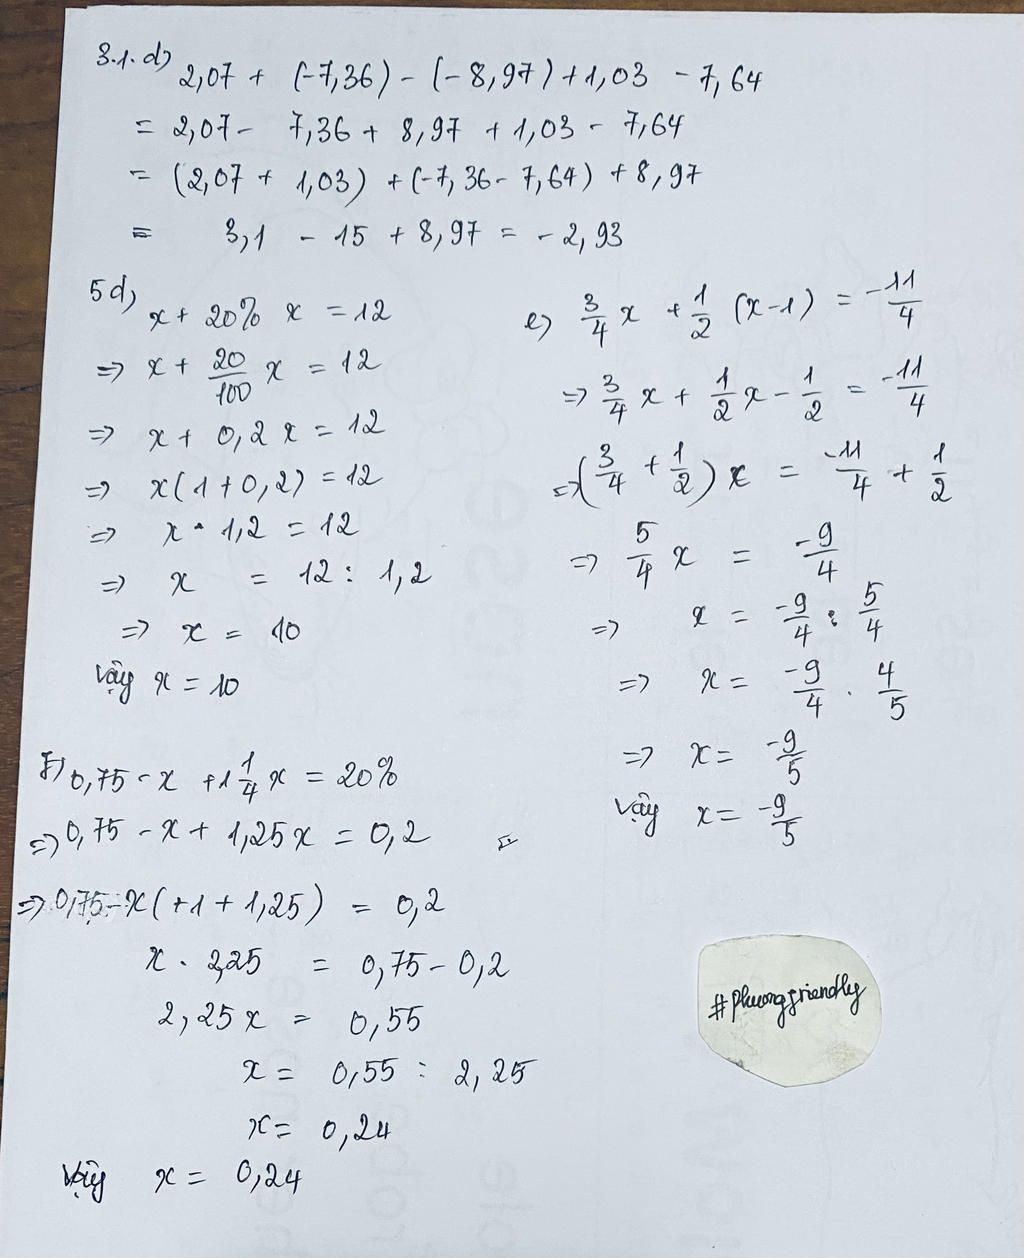 3.1.d) 2,07 + (-7,36) - (-8,97) + 1,03 - 7,64
= 2,07 - 7,36 + 8,97 + 1,03 - 7,64
= (2,07 + 1,03) + (-7,36 - 7,64) + 8,97
= 3,1 - 15 + 8,97 = -2,93
5d) x + 20% x = 12
=> x + 20/100 x = 12
=> x + 0,2 x = 12
=> x(1+0,2) = 12
=> x · 1,2 = 12
=> x = 12 : 1,2
=> x = 10
Vậy x = 10
e) 3/4 x + 1/2 (x-1) = -11/4
=> 3/4 x + 1/2 x - 1/2 = -11/4
=> (3/4 + 1/2) x = -11/4 + 1/2
=> 5/4 x = -9/4
=> x = -9/4 : 5/4
=> x = -9/4 . 4/5
=> x = -9/5
Vậy x = -9/5
F) 0,75 - x + 1 1/4 x = 20%
=> 0,75 - x + 1,25 x = 0,2
=> 0,75 - x(+1 + 1,25) = 0,2
x . 2,25 = 0,75 - 0,2
2,25 x = 0,55
x = 0,55 : 2,25
x = 0,24
Vậy x = 0,24
#phuongfriendly